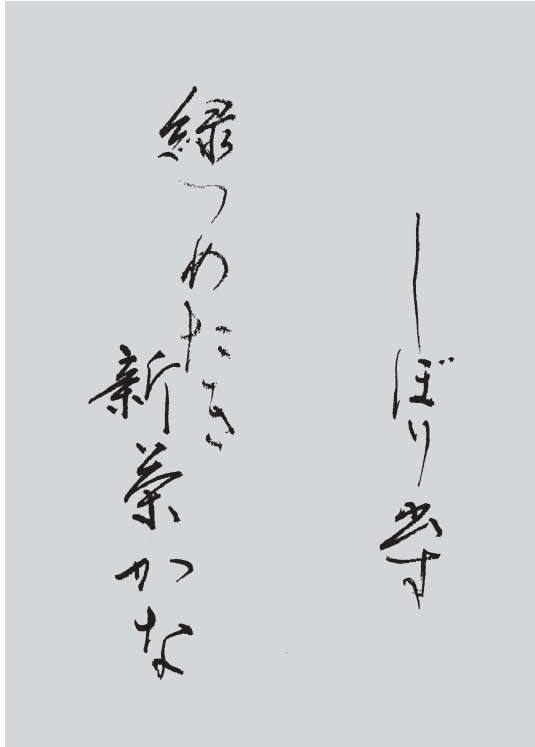 しぼり出す
緑つめたき
新茶かな